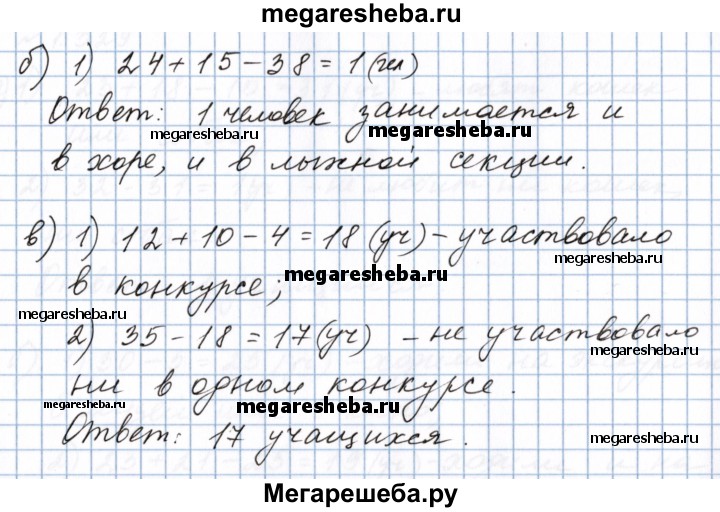 megaresheba.ru
б) 1) 24 + 15 - 38 = 1 (чел)
Ответ: 1 человек занимается и
megaresheba.ru
megaresheba.ru
в хоре, и в лыжной секции.
в) 1) 12 + 10 - 4 = 18 (уч) - участвовало
megaresheba.ru
в конкурсе;
megaresheba.ru
2) 35 - 18 = 17 (уч) - не участвовало
megaresheba.ru
ни в одном конкурсе.
megaresheba.ru
megaresheba.ru
Ответ: 17 учащихся.
megaresheba.ru
Мегарешеба.ру